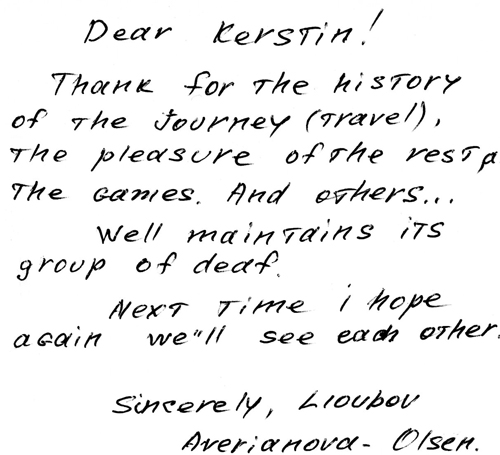 Dear Kerstin!
Thank for the history
of the journey (travel),
the pleasure of the rest,
the games. And others...
Well maintains its
group of deaf.
Next time i hope
again we"ll see each other.
Sincerely, Lioubov
Averianova - Olsen.